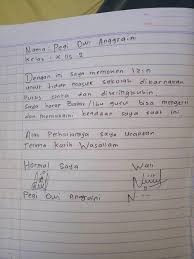 Nama : Pegi Dwi Anggraini
Kelas : X IIS 2
Dengan ini saya memohon Izin
untuk tidak masuk sekolah dikarnakan
Putus cinta dan diselingkuhin.
Saya harap Bapak/Ibu guru bisa mengerti
dan memahami keadaan saya saat ini
Atas Perhatiannya saya ucapkan
Terima Kasih Wasallam
Hormat Saya Wali
Pegi Dwi Anggraini N